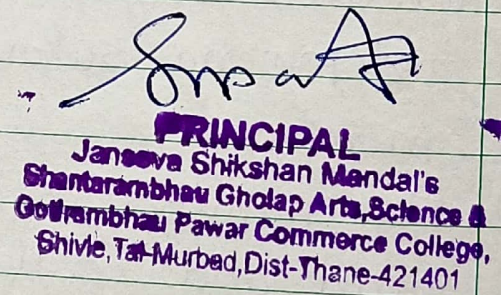 PRINCIPAL
Janseva Shikshan Mandal's
Shantarambhau Gholap Arts,Science &
Gotirambhau Pawar Commerce College,
Shivle,Tal-Murbad,Dist-Thane-421401